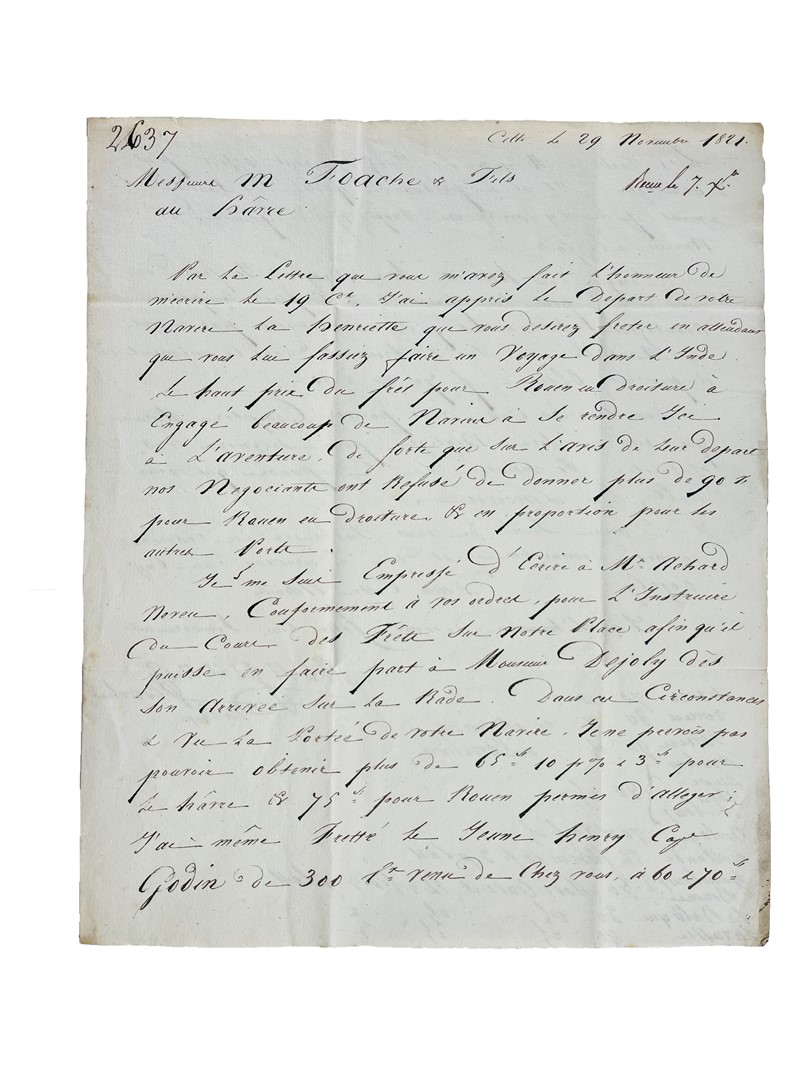 2637
Cette le 29 Novembre 1821.
Messieurs M Foache & Fils
Reçu le 7. Xbre
au hâvre
Par La Lettre que vous m'avez fait L'honneur de
m'ecrire le 19 Ct. J'ai appris le Depart de votre
Navire La henriette que vous desirez freter en attendant
que vous Lui fassiez faire un Voyage dans L'Inde.
Le haut prix Du frés pour Rouen en Droiture à
Engagé beaucoup de Navires à Se rendre Ici
à L'aventure, de sorte que sur L'avis de Leur depart
nos Negociants ont Refusé de donner plus de 90 #
pour Rouen en droiture & en proportion pour les
autres Ports.
Je me suis Empressé d'Ecrire à Mr. Achard
Neveu, Conformement à vos ordres, pour L'Instruire
Du Cours des Frêts sur Notre Place afin qu'il
puisse en faire part à Monsieur Dejoly dès
Son Arrivée sur La Rade. Dans ces Circonstances
& Vu La Portée de votre Navire, Je ne prevois pas
pouvoir obtenir plus de 65 # 10 p % & 3 # pour
Le hâvre & 75 # pour Rouen permis d'alleger;
J'ai même Fretté le Jeune henry Cape
Godin de 300 Tx venu de Chez vous, à 60 & 70 #